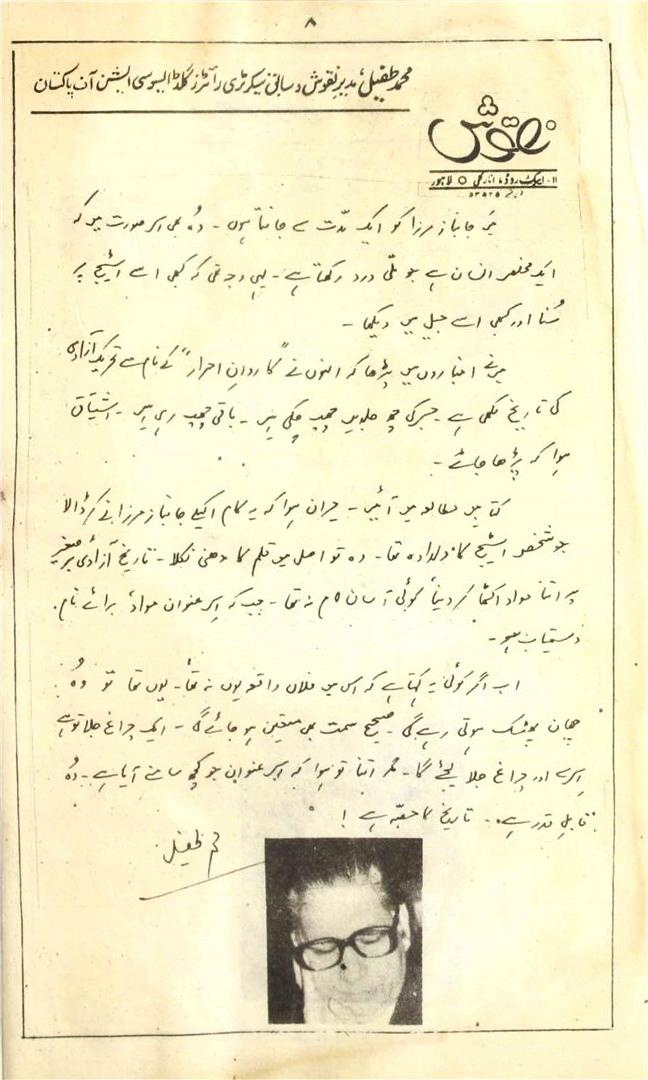 ۸
محمد طفیل، مدیر نقوش و سابق سیکرٹری رائٹرز گلڈ ایسوسی ایشن آف پاکستان
نقوش
۱۱- ایبک روڈ، انارکلی ○ لاہور
میں جانباز مرزا کو ایک مدّت سے جانتا ہوں۔ وُہ بھی اس صورت میں کہ
ایک مخلص انسان ہے جو ملّی درد رکھتا ہے۔ یہی وجہ تھی کہ کبھی اسے اسٹیج پر
سُنا اور کبھی اسے جیل میں دیکھا۔
میں نے اخباروں میں پڑھا کہ انہوں نے "کاروانِ احرار" کے نام سے تحریک آزادی
کی تاریخ لکھی ہے۔ جس کی چھ جلدیں چھپ چکی ہیں۔ باقی چھپ رہی ہیں۔ اشتیاق
ہوا کہ پڑھا جائے۔
کتابیں مطالعہ میں آئیں۔ حیران ہوا کہ یہ کام اکیلے جانباز مرزا نے کر ڈالا
جو شخص اسٹیج کا دلدادہ تھا۔ وہ تو اصل میں قلم کا دھنی نکلا۔ تاریخ آزادی برصغیر
پر اتنا مواد اکٹھا کر دینا کوئی آسان کام نہ تھا۔ جب کہ اس عنوان مواد برائے نام
دستیاب ہو۔
اب اگر کوئی یہ کہتا ہے کہ اس میں فلاں واقعہ یوں نہ تھا۔ یوں تھا تو وُہ
چھان پھٹک ہوتی رہے گی۔ صحیح سمت بھی متعین ہو جائے گی۔ ایک چراغ جلا تو ہے
اِس سے اور چراغ جلا لیجئے گا۔ مگر اتنا تو ہوا کہ اس عنوان جو کچھ سامنے آیا ہے۔ وُہ
قابلِ قدر ہے۔ تاریخ کا حصّہ ہے!
محمد طفیل